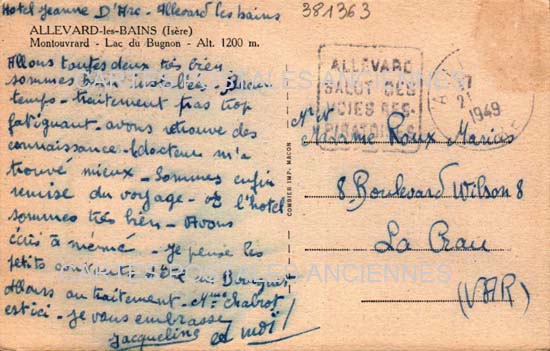 Hotel Jeanne D'Arc - Allevard les bains
381363
ALLEVARD-les-BAINS (Isère)
Montouvrard - Lac du Bugnon - Alt. 1200 m.
Allons toutes deux très bien
sommes bien installées - Beau
temps - traitement pas trop
fatiguant - avons retrouvé des
connaissances - docteur m'a
trouvé mieux - Sommes enfin
remise du voyage - à l'hotel
sommes très bien - Avons
écris à mémé - Je pense les
petits sont
Allons au traitement - Mme Chabrot
est ici - Je vous embrasse
Jacqueline et moi !
COMBIER IMP. MACON
ALLEVARD
SALUT DES
VOIES RES-
PIRATOIRES
1949
Madame Roux Marius
8 Boulevard Wilson 8
La Crau
(VAR)
CARTES POSTALES ANCIENNES